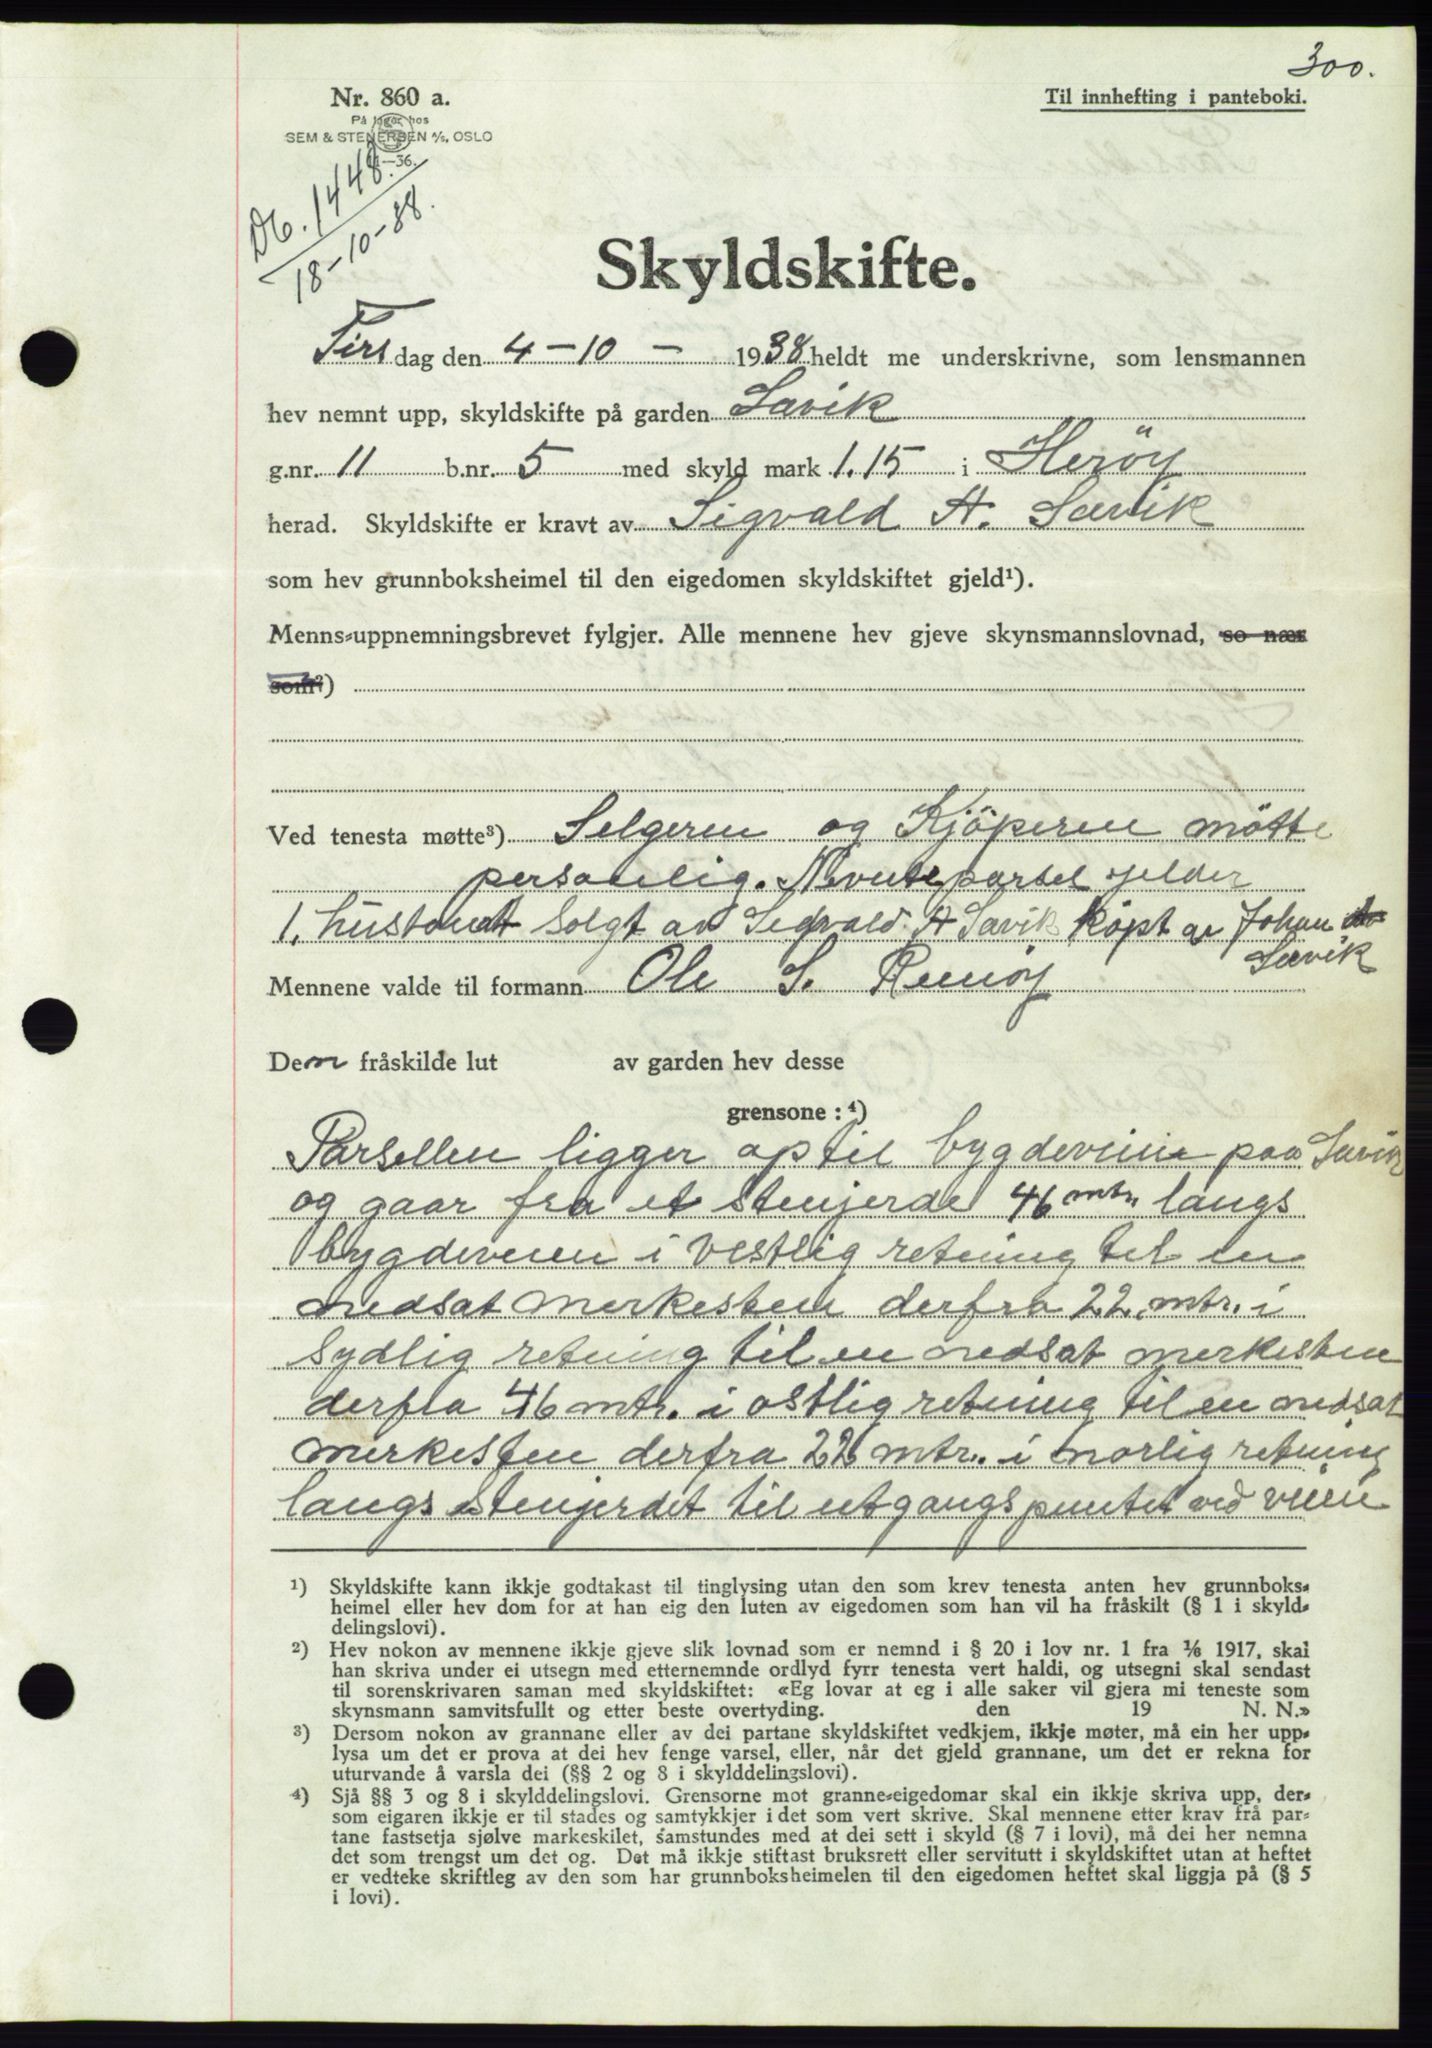 300.
Nr. 860 a.
Til innhefting i panteboki.
På lager hos
SEM & STENERSEN A/S, OSLO
11—36.
Db. 1448.
18-10-38.
Skyldskifte.
Tirsdag den 4-10- 1938 heldt me underskrivne, som lensmannen
hev nemnt upp, skyldskifte på garden Sævik
g.nr. 11 b.nr. 5 med skyld mark 1.15 i Herøy
herad. Skyldskifte er kravt av Sigvald A. Sævik
som hev grunnboksheimel til den eigedomen skyldskiftet gjeld¹).
Menns-uppnemningsbrevet fylgjer. Alle mennene hev gjeve skynsmannslovnad, so nær
som²)
Ved tenesta møtte³) Selgeren og Kjöperen mötte
personlig. Nevnte parsel gjelder
1. hustomt Solgt av Sigvald A Sævik köpt av Johan
Sævik
Mennene valde til formann Ole S. Remöy
Den fråskilde lut av garden hev desse
grensone:⁴)
Parsellen ligger optil bygdeveiin paa Sævik
og gaar fra et stenjerde 46 mtr. langs
bygdeveien i Vestlig retning til en
nedsat merkesten derfra 22. mtr. i
Sydlig retning til en nedsat merkesten
derfra 46 mtr. i ostlig retning til en nedsat
merkesten derfra 22 mtr. i norlig retning
langs stenjerdet til utgangspuntet ved veiin
¹) Skyldskifte kann ikkje godtakast til tinglysing utan den som krev tenesta anten hev grunnboks-
heimel eller hev dom for at han eig den luten av eigedomen som han vil ha fråskilt (§ 1 i skyld-
delingslovi).
²) Hev nokon av mennene ikkje gjeve slik lovnad som er nemnd i § 20 i lov nr. 1 fra 1/6 1917, skal
han skriva under ei utsegn med etternemnde ordlyd fyrr tenesta vert haldi, og utsegni skal sendast
til sorenskrivaren saman med skyldskiftet: «Eg lovar at eg i alle saker vil gjera mi teneste som
skynsmann samvitsfullt og etter beste overtyding. den 19 N. N.»
³) Dersom nokon av grannane eller av dei partane skyldskiftet vedkjem, ikkje møter, må ein her upp-
lysa um det er prova at dei hev fenge varsel, eller, når det gjeld grannane, um det er rekna for
uturvande å varsla dei (§§ 2 og 8 i skylddelingslovi).
⁴) Sjå §§ 3 og 8 i skylddelingslovi. Grensorne mot granne-eigedomar skal ein ikkje skriva upp, der-
som eigaren ikkje er til stades og samtykkjer i det som vert skrive. Skal mennene etter krav frå par-
tane fastsetja sjølve markeskilet, samstundes med at dei sett i skyld (§ 7 i lovi), må dei her nemna
det som trengst um det og. Det må ikkje stiftast bruksrett eller servitutt i skyldskiftet utan at heftet
er vedteke skriftleg av den som har grunnboksheimelen til den eigedomen heftet skal liggja på (§ 5
i lovi).